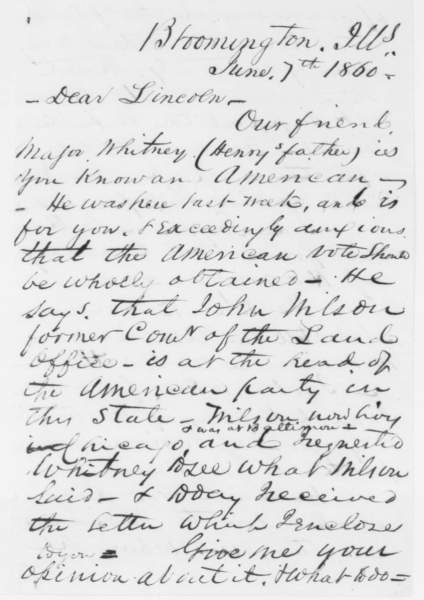 Bloomington. Ills
June. 7th 1860
- Dear Lincoln -
Our friend
Major. Whitney. (Henry's father) is
you Know an American -
- He was here last week, and is
for you. & Exceedingly anxious
that the American vote Should
be wholly obtained - He
says. that John Wilson
former Comr of the Land
Office - is at the head of
the American party in
this State - Wilson now lives
& was at Baltimore
in Chicago, and I requested
Whitney to see what Wilson
Said - & to day I received
the letter which I enclose
to you = Give me your
opinion about it. & What to do =